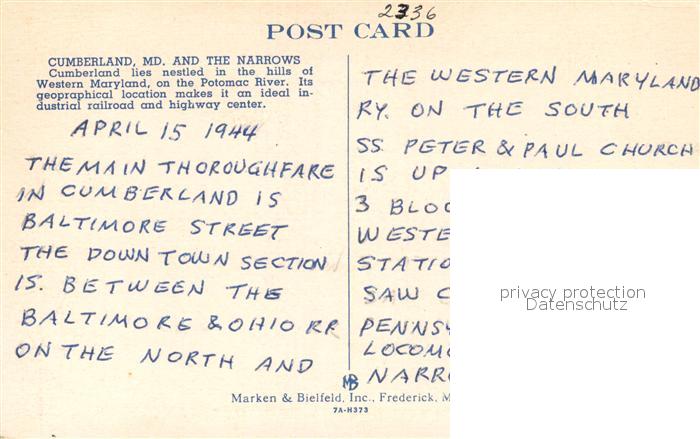 2336
POST CARD
CUMBERLAND, MD. AND THE NARROWS
Cumberland lies nestled in the hills of
Western Maryland, on the Potomac River. Its
geographical location makes it an ideal in-
dustrial railroad and highway center.
APRIL 15 1944
THE MAIN THOROUGHFARE
IN CUMBERLAND IS
BALTIMORE STREET
THE DOWN TOWN SECTION
IS. BETWEEN THE
BALTIMORE & OHIO RR
ON THE NORTH AND
THE WESTERN MARYLAND
RY. ON THE SOUTH
SS PETER & PAUL CHURCH
IS UP
3 BLOC
WESTE
STATIO
SAW C
PENNSY
LOCOMO
NARRO
MB
privacy protection
Datenschutz
Marken & Bielfeld, Inc., Frederick, M
7A-H373